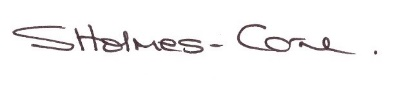 SHolmes - Cone .